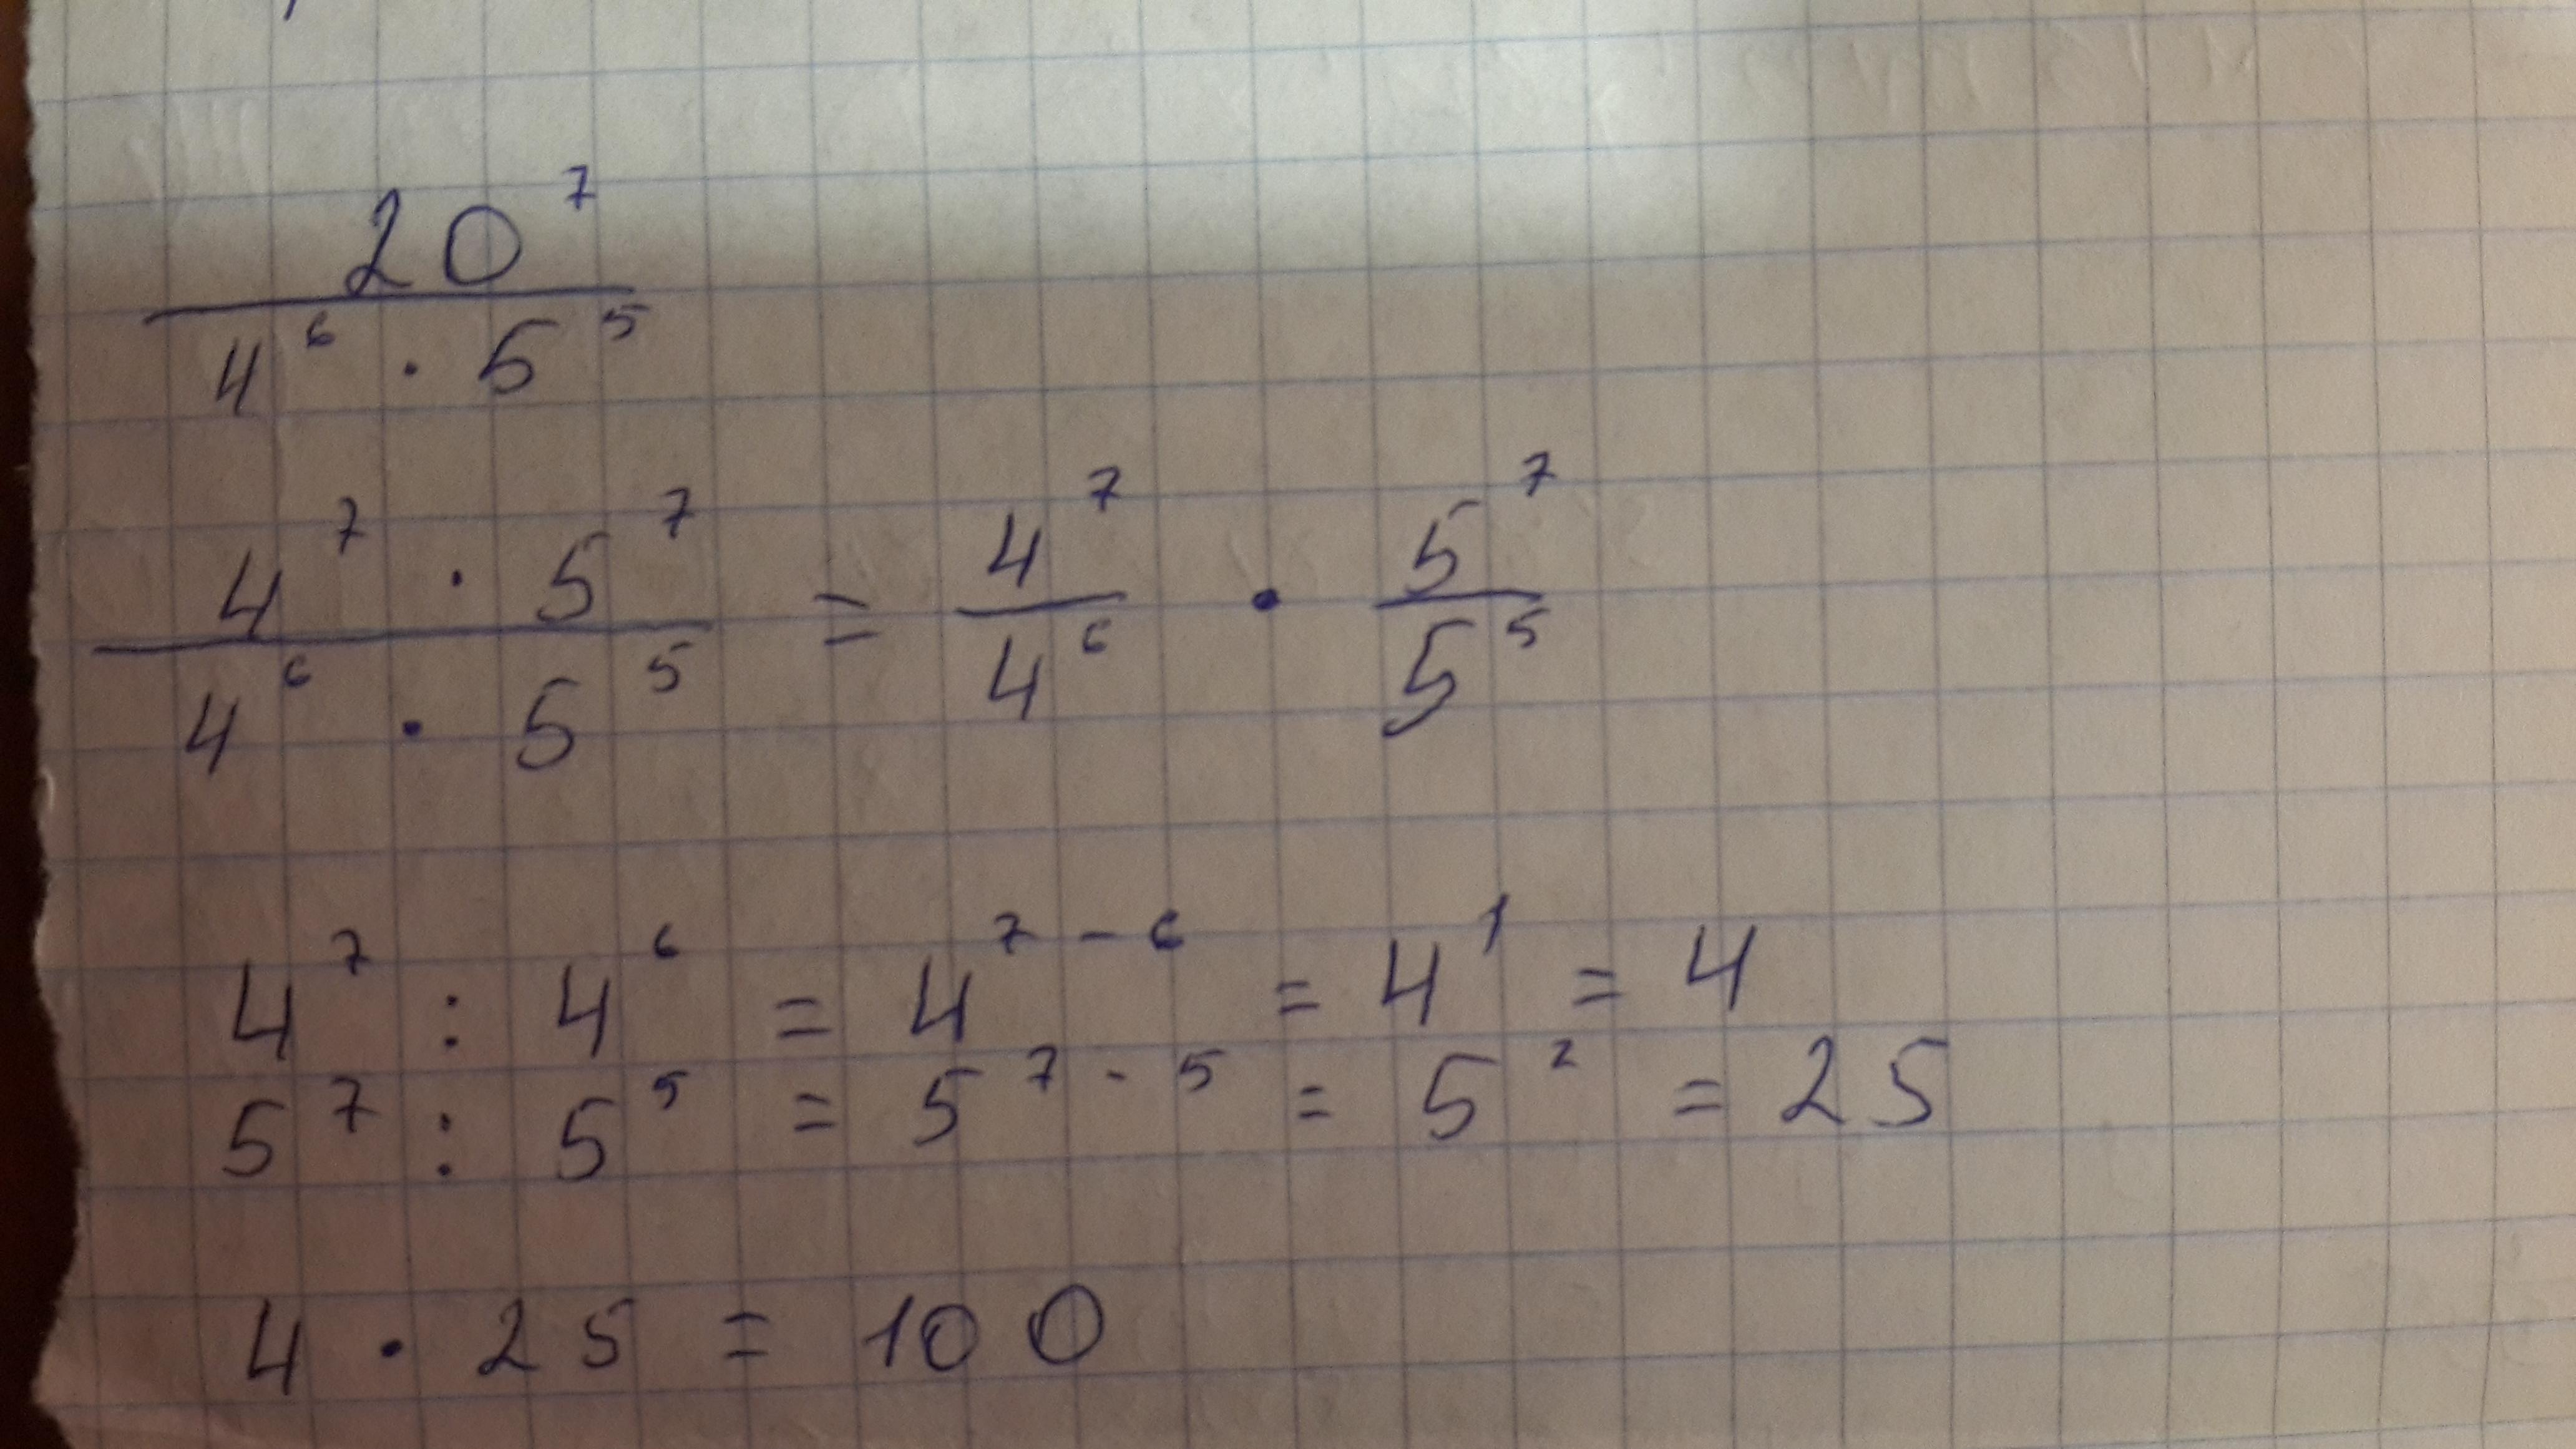 20⁷
4⁶ · 5⁵
4⁷ · 5⁷ / 4⁶ · 5⁵ = 4⁷/4⁶ · 5⁷/5⁵
4⁷ : 4⁶ = 4⁷⁻⁶ = 4¹ = 4
5⁷ : 5⁵ = 5⁷⁻⁵ = 5² = 25
4 · 25 = 100